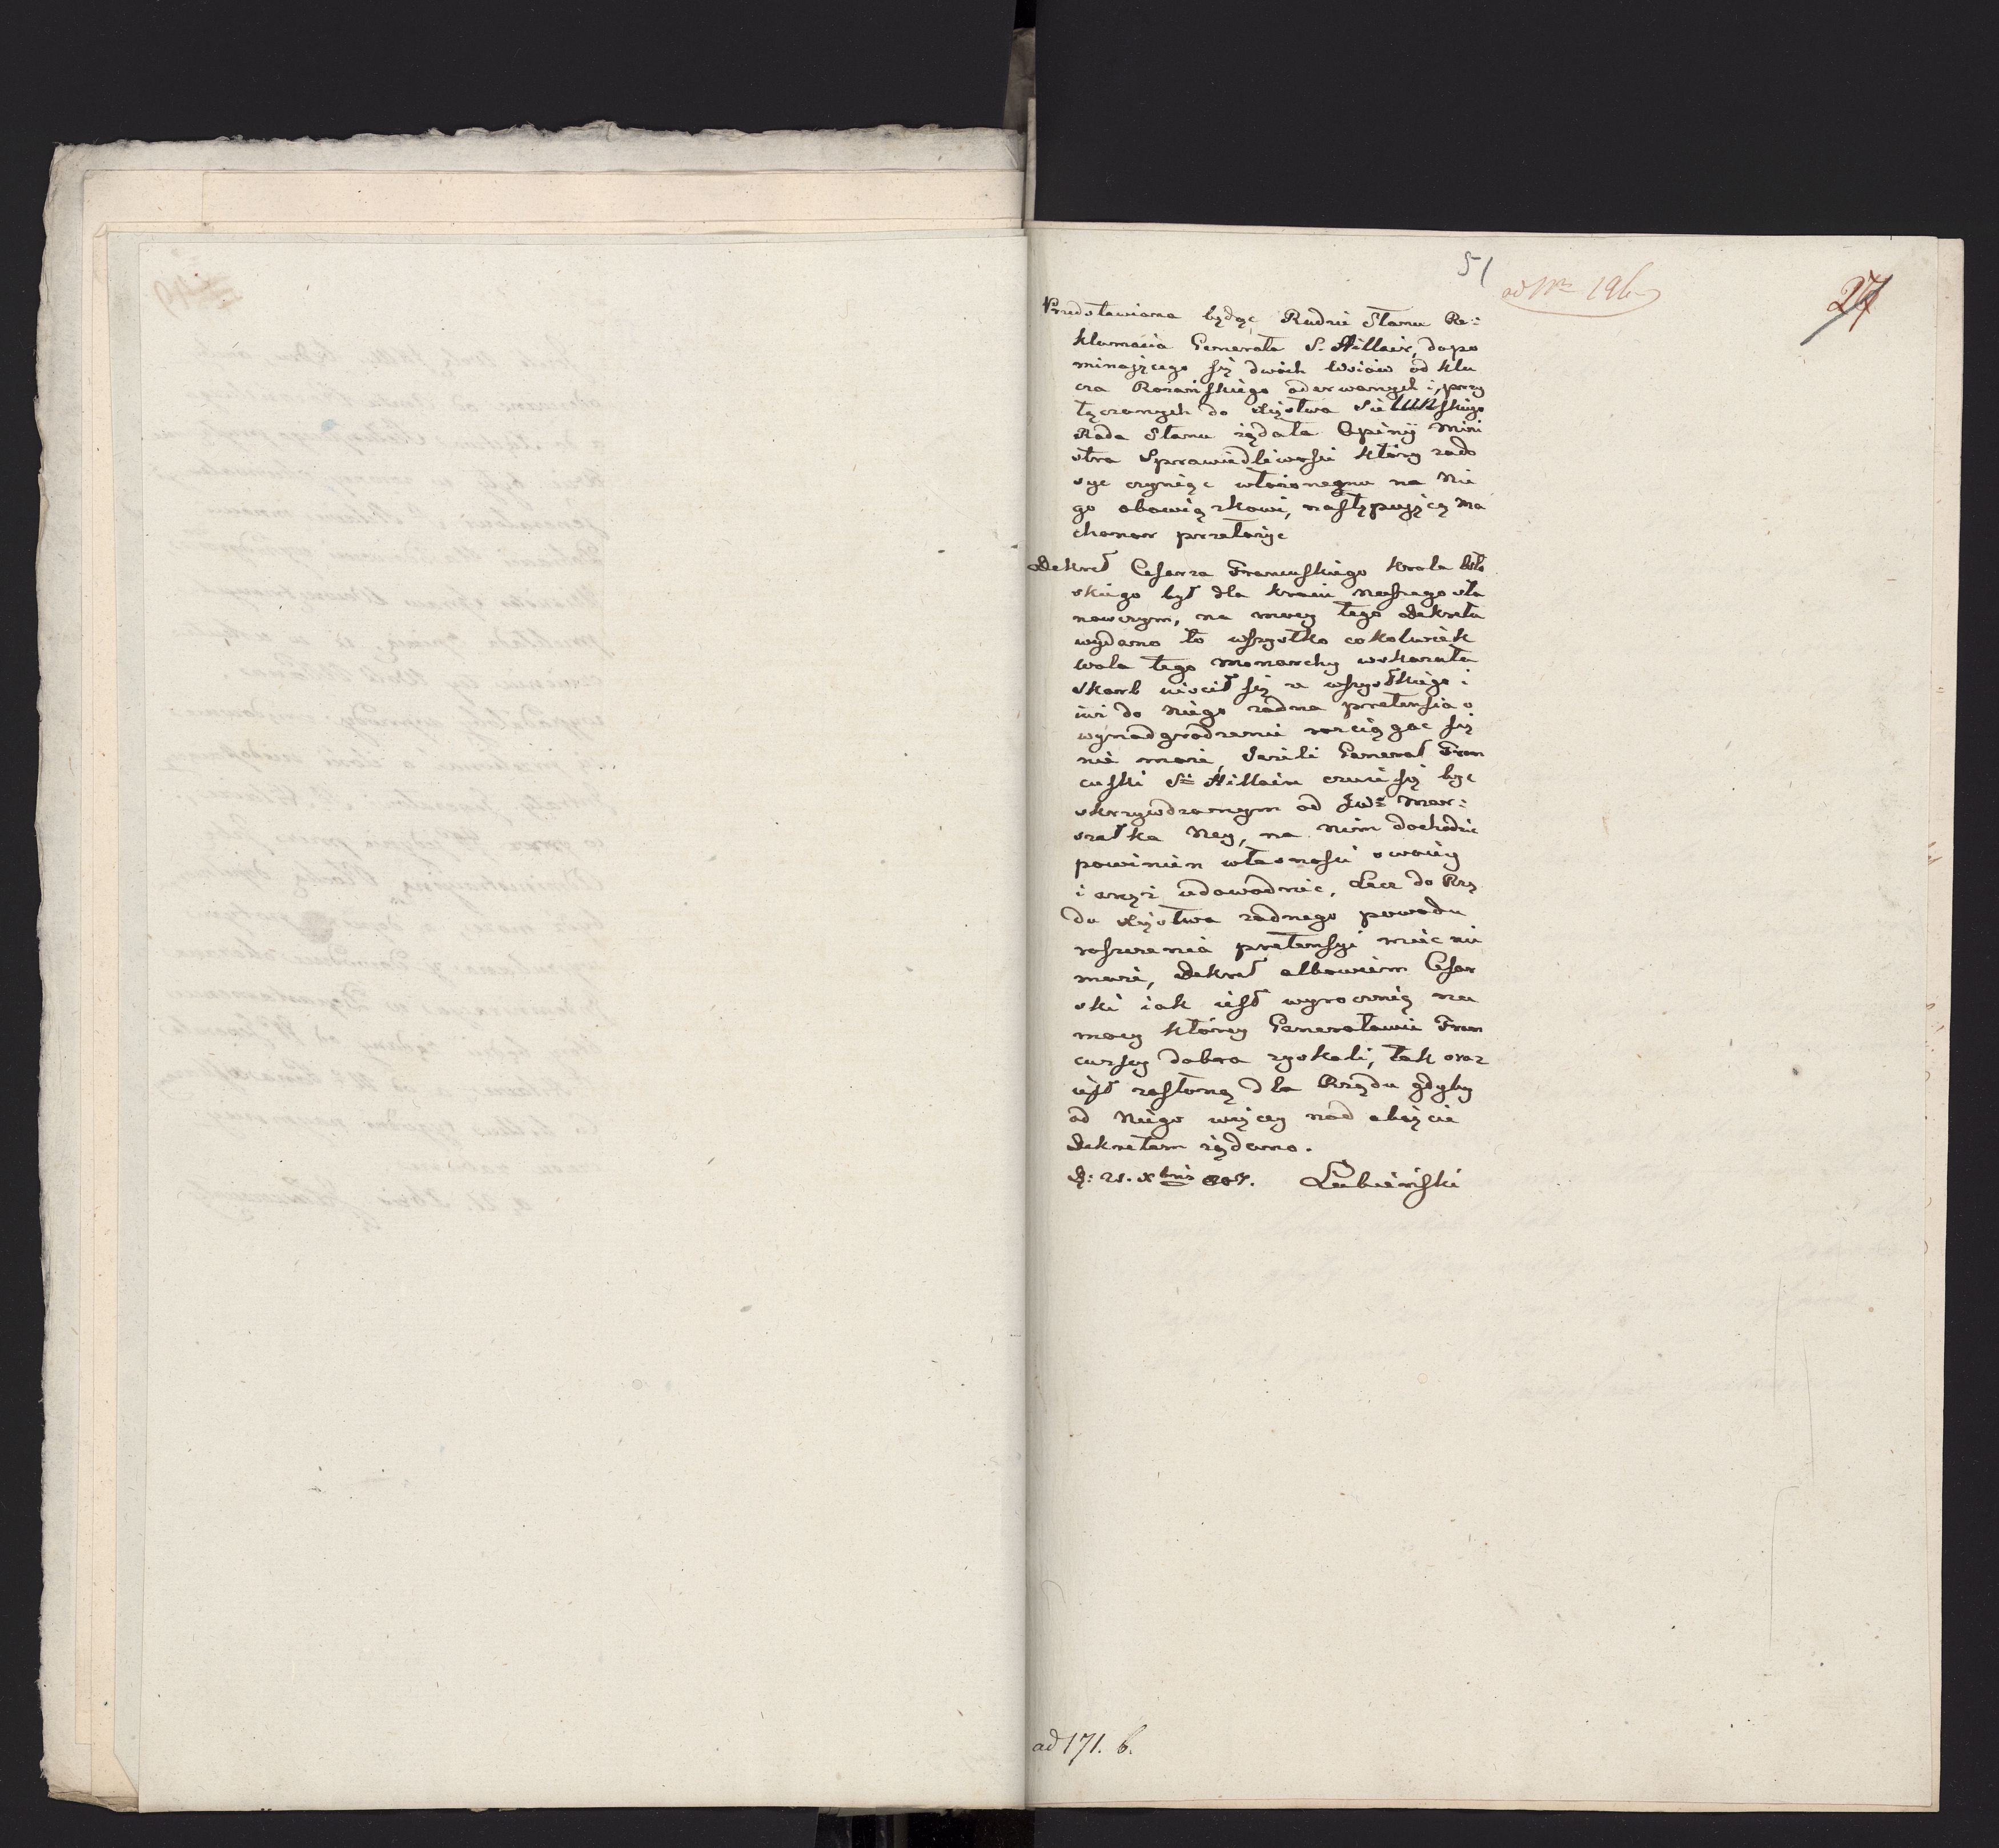 51
ad Nrm 196
27
Przedstawiona będąc Radzie Stanu Re:
klamacia Generała S. Hillair, dopo
minaiącego się dwóch Wsiów od klu
cza Rożańskiego oderwanych i przy
łączonych do Xięstwa Sieluńskiego
Rada Stanu żądała Opinij Mini
stra Sprawiedliwości który zado
syc czyniąc włożonegmu na Nie
go obowiązkowi, następuiącą ma
chonor przełożyc
Dekret Cesarza Francuskiego Krola Wło
skiego był dla kraiu naszego sta
nowczym, na mocy tego Dekretu
wydano to wszystko cokolwiek
wola tego Monarchy wskazała
Skarb uiscił się z wszystkiego i
iuż do Niego żadna pretensia o
wynadgrodzenie rozciągac się
nie może, Jeżeli Generał Fran
cuski St Hillair czuie się byc
skrzywdzonym od JWo Mar:
szałka Ney, na Nim dochodzic
powinien własności swoiey
i onęż udowodnic, Lecz do Rzą
du Xięstwa żadnego powodu
roszczenia pretensyi miec nie
może, Dekret albowiem Cesar
ski iak iest wyrocznią na
mocy którey Generałowie Fran
cuzcy dobra zyskali, tak oraz
iest zasłoną dla Rządu gdyby
od Niego więcey nad obięcie
Dekretem żądano.
D: 21. Xbris 807. Łubieński
ad 171. b.